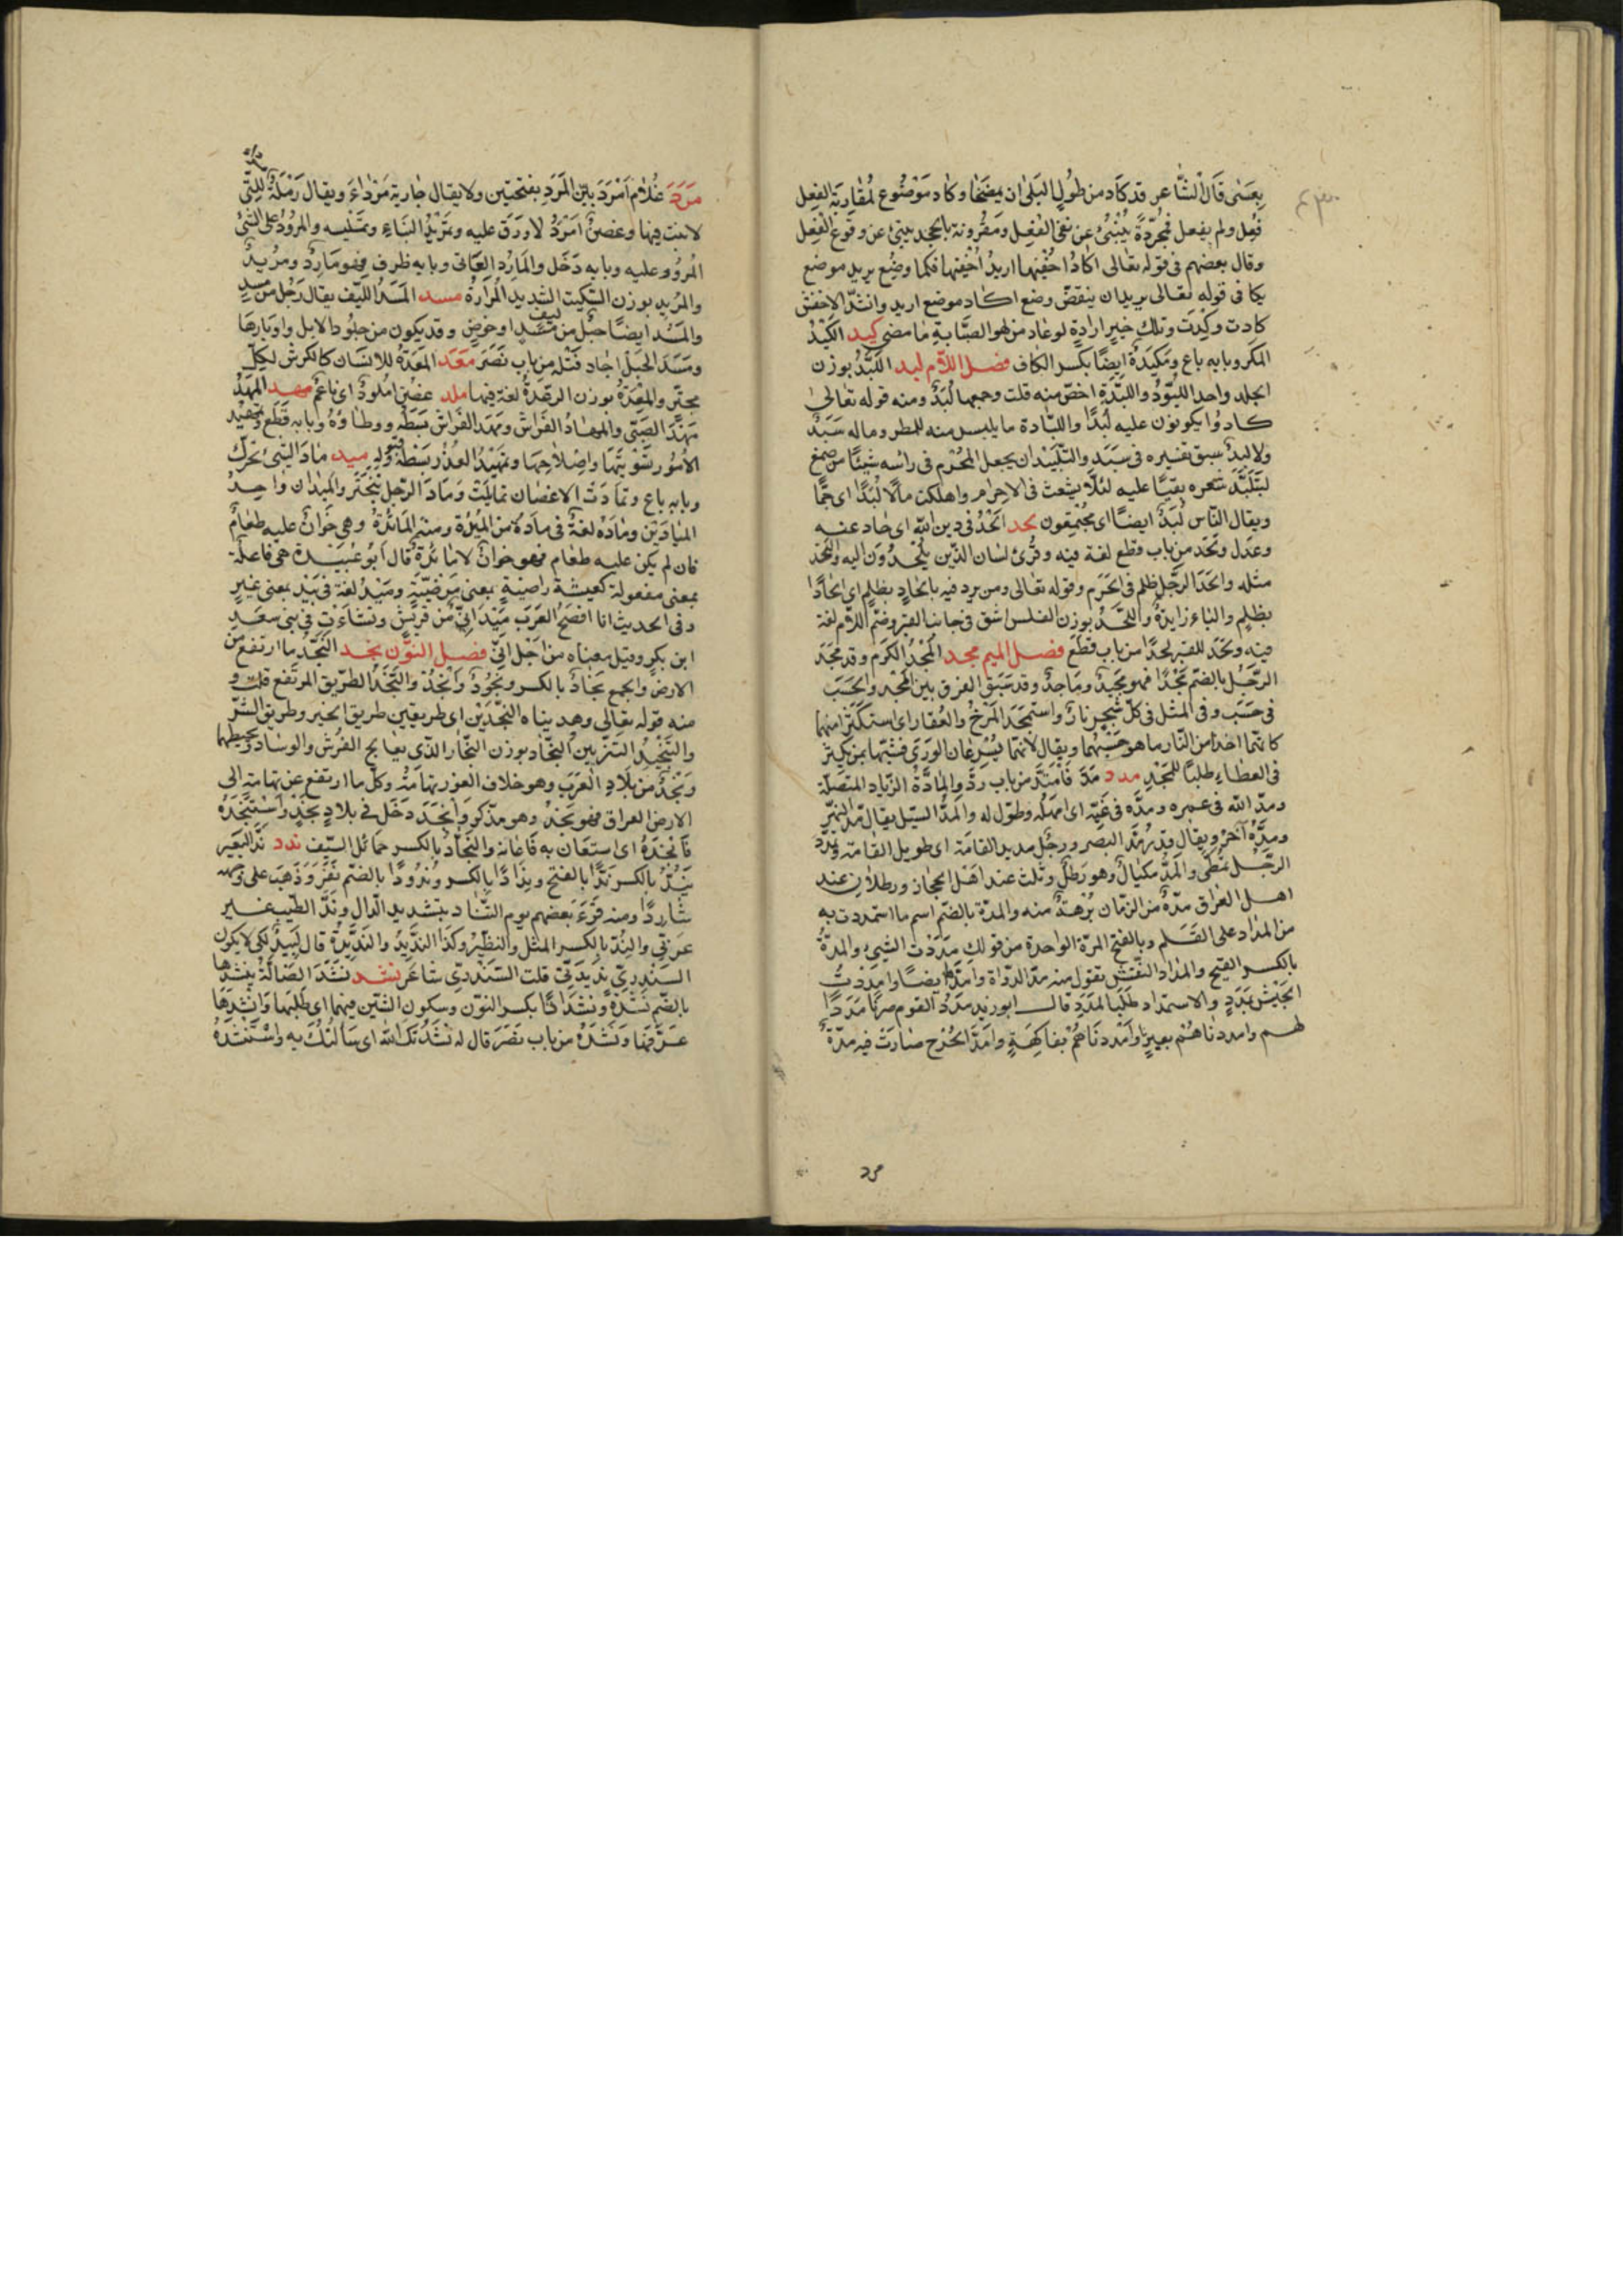 بِعَسٰى قَالَ الشَّاعر قد كَاَد من طُولِ البَلىٰ ان يمضَحَا وكاد مَوْضُوع لمُقَارَبَة الفِعل
فُعِل ولم يفعل فمُجرّدةً يُنْبئُ عن نفى الفِعل ومَقْرونة بالجحد يبنئ عن وقوع الفِعل
وقال بعضهم فى قوله تعالى اكادُ اخْفِيها اريدُ اُخْفِيها فكما وضُع يريد موضع
يكا فى قوله تعالى يريد ان ينقضّ وضع اكاد موضع اريد وانشدَ الاخفش
كادت وكِدْتُ وتلك خير ارادةٍ لو عاد من لهو الصَّبابة ما مضى كيد الكَيْدُ
المكر وبابه باع ومَكِيَدةً ايضًا بكسر الكاف فصل اللّام لبد اللِّبْدُ بوزن
الجلد واحد اللبُوْدُ واللِّبْدَة اخصّ منه قلت وجمعها لُبَدٌ ومنه قوله تعالى
كادوُا يكونون عليه لُبَدًا واللُبَّادة ما يلبس منه للمطر وماله سَبَدٌ
ولا لبدٌ سبق تفسيره فى سَبَدَ والتَّلْبيْد ان يجعل المُحْرم فى راسه شيئًا من صمغ
ليَتَلبَّدَ شعره بقيًا عليه لئلّا يشعث فى الاحرام واهلكت مالًا لُبَدًا اى جَمًّا
ويقال النّاس لُبَدٌ ايضًا اى مُجْتَمِعُون لحد اَلْحَدَ فى دين الله اى حاد عنه
وعدَل ولَحَد من باب قطع لغة فيه وقُرئ لسان الذّين يَلْحَدُوَن اليه والتَحَد
مثله واَلحَدَ الرّجل ظلم فى الحَرَم وقوله تعالى ومن يرد فيه بالحادٍ بظلم اى الحادًا
بظلمٍ والباء زايدةٌ واللَّحْدُ بوزن الفلس الشق فى جانب القبر وضمّ اللّام لغة
فيه ولَحَد للقبر لحدًا من باب قَطَع فصل الميم مجد المَجْدُ الكَرَم وقد مَجُدَ
الرّجُل بالضّم مَجْدًا فهو مَجِيدٌ ومَاجدٌ وقد سَبَق الفرق بين المَجْد والحَسَب
فى حَسَب وفى المثل فى كلّ شَجرٍ نارٌ واستمجَدَ المَرْخُ والعُفار اى استكثَرا منها
كانّهما اخذا من النّار ما هو حَسْبُهما ويقال لانّهما يُسْرِعَان الوَرْىَ فشبّها بمن يكثر
فى العطاءِ طلبًا للمَجْدِ مدد مَدَّ فَامْتَدَّ من باب ردَّ والمادّةُ الزيادة المتصلة
ومدّ الله فى عمره ومدَّه فى غَيّه اى امهَله وطوّل له والمَدُّ السّيل يقال مَدَّ النّهرُ
ومدَّهُ آخرُ ويقال قدر مَدّ البصر ورجُل مديد القامَة اى طويل القامَة وتَمَدَّدَ
الرّجُل تمطّى والمُدُّ مكيالٌ وهو رَطلٌ وثلث عند اهَل الحجاز ورطلانِ عند
اهل العراق مدّةٌ من الزّمان بُرْهةٌ منه والمدّة بالضّم اسم ما استمددت به
من المِدَاد على القَلم وبالفتح المرّة الواحدة من قولك مَدَدْت الشيئ والمدّةُ
بالكسر القيح والمداد النِّقس تقول منه مدّ الدّواة وامدّها ايضًا وامدَدْتُ
الجَيْش بمَدَدٍ والاستمداد طَلَب المَدَدِ قال ابو زيد مدَدْنا القوم صرنا مَدَدًا
لهم وامددناهُمْ بغيرنا وَاَمْددْنَاهُمْ بفاكِهَةٍ وامَدَّ الجُرْح صَارَتْ فيه مدّةٌ
مرد
مَرَدَ غُلَامٌ اَمْرَدَ بيّن المَرَدِ بفتحتين ولا يقال جارية مَرْدَاءَ ويقال رَمْلَةٌ للّتى
لا نبت فيها وغصنٌ اَمرَدُ لا وَرَق عليه وتمْرِيْدُ البناءِ وتمليسه والمرُوْدُ على الشئ
المرُوُد عليه وبابه دَخَل والمَارِد العَاتى وبابه ظرف فهو مَارِدٌ ومرُيدٌ
والمرّيد بوزن السّكيت الشّديد المُرَادَةُ مسد المَسَدُ اللّيف يقال رَجُل من مسدٍ
والمَسَد ايضًا حبْل من ليفٍ او خوصٍ وقد يكون من جلود الابل واوبارها
ومَسَدَ الحَبل اجاد فَتْله من باب نَصَر معد المَعدَةُ للانسَان كالكرش لكلّ
مجترٍّ والمِعْدَةُ بوزن الرّعدةُ لغة فيها ملد غصْن امْلُودٌ اى ناعِمٌ مهد المَهْدُ
مَهْدَ الصَّبِّى والمِهادُ الفَراشَ ومَهَد الفِرَاش بَسَطَه ووطاؤهُ وبابه قَطَع وتَمهْيدُ
الاُمُور تَسْوِيَتُهَا واِصْلاحِهَا وتَمهْيدُ العُذْر بَسْطهُ وقبُولهِ ميد مَادَ الشّئُ تحرّك
وبابه باع وتمادَتْ الاغصان تمايلَتْ وَمَادَ الرّجل تَبَخْتَرَ والمَيْدان واحدُ
الميَادين ومادَه لغةٌ فى مادَهُ من المِيْرَة ومنه المَائدةُ وهى خَوَانٌ عليه طعَامٌ
فان لم يكن عليه طعام فهو خَوانٌ لا مائدةٌ قال اَبُو عُبَيْدة هى فاعلة
بمعنى مفعولة كعيشة راضيةٍ بمعنى مرْضيّةٍ ومَيْدَ لغة فى بَيْد بمعنى غيرٍ
وفى الحديث انا افصَحُ العَرَب مَيْدَ اَنِّى من قريشٍ ونشأتُ فى بنى سَعْدِ
ابن بكرٍ وقيل معناه من اَجْل اَنّى فصل النوّن نجد النَّجْدُ ما ارتفع من
الارضِ والجمع نِجَادٌ بالكسر ونُجُودٌ واَنْجُدٌ والنَّجْدُ الطّريق المرتفع قلت و
منه قوله تعالى وهديناه النّجْدَين اى طريقَين طريق الخير وطريق الشّر
والتَّنْجِيْدُ التّزيين والنّجّاد بوزن النّجّار الذّى يعالج الفُرُش والوسادَ ويخيطهما
ونَجْدٌ من بلَادِ العَرَب وهو خلاف الغور تهامَةُ وكلّ ما ارتفع عن تهامة الى
الارض العراق فهو نَجْدٌ وهو مذكر وَاَنْجَدَ دَخَل فى بلادِ نجْدٍ واسْتَنْجَدَهُ
فَاَنجدَهُ اى استعَانَ به فَاَعَانهُ والنِّجاْدُ بالكسر حمَائل السّيف ندد نَدَّ البَعَير
يَنِدُّ بالكسر نَدًّا بالفتح ونِدَادًا بالكسر ونُدُودًا بالضّم نَفَر وَذَهَب على وجهه
شَارِدًا ومنه قَرَءَ بَعضهم يوم التَّنَادّ بتشديد الدّال ونَدّ الطّيب غير
عَرَبّى والنِدّ بالكسر المثل والنّظيرُ وكَذَا النَّدِيْدُ والنَّدِيْدَةُ قال لَبِيدٌ لكى لا يكون
السّنْدَرِىّ نديدَتى قلت السّنْدَرِىّ شاعر نشد نَشَدَ الضّالّةَ يَنْشُدُها
بالضّم نِشْدَةً ونِشْدَانًا بكسر النوّن وسكون الشّين فيهما اى طلبَها وَاَنْشَدَهَا
عَرَّفَهَا ونَشَدَهُ من باب نصَر قال له نَشَدْتُكَ الله اى سَاَلْتُكَ به واسْتَنْشَدَهُ